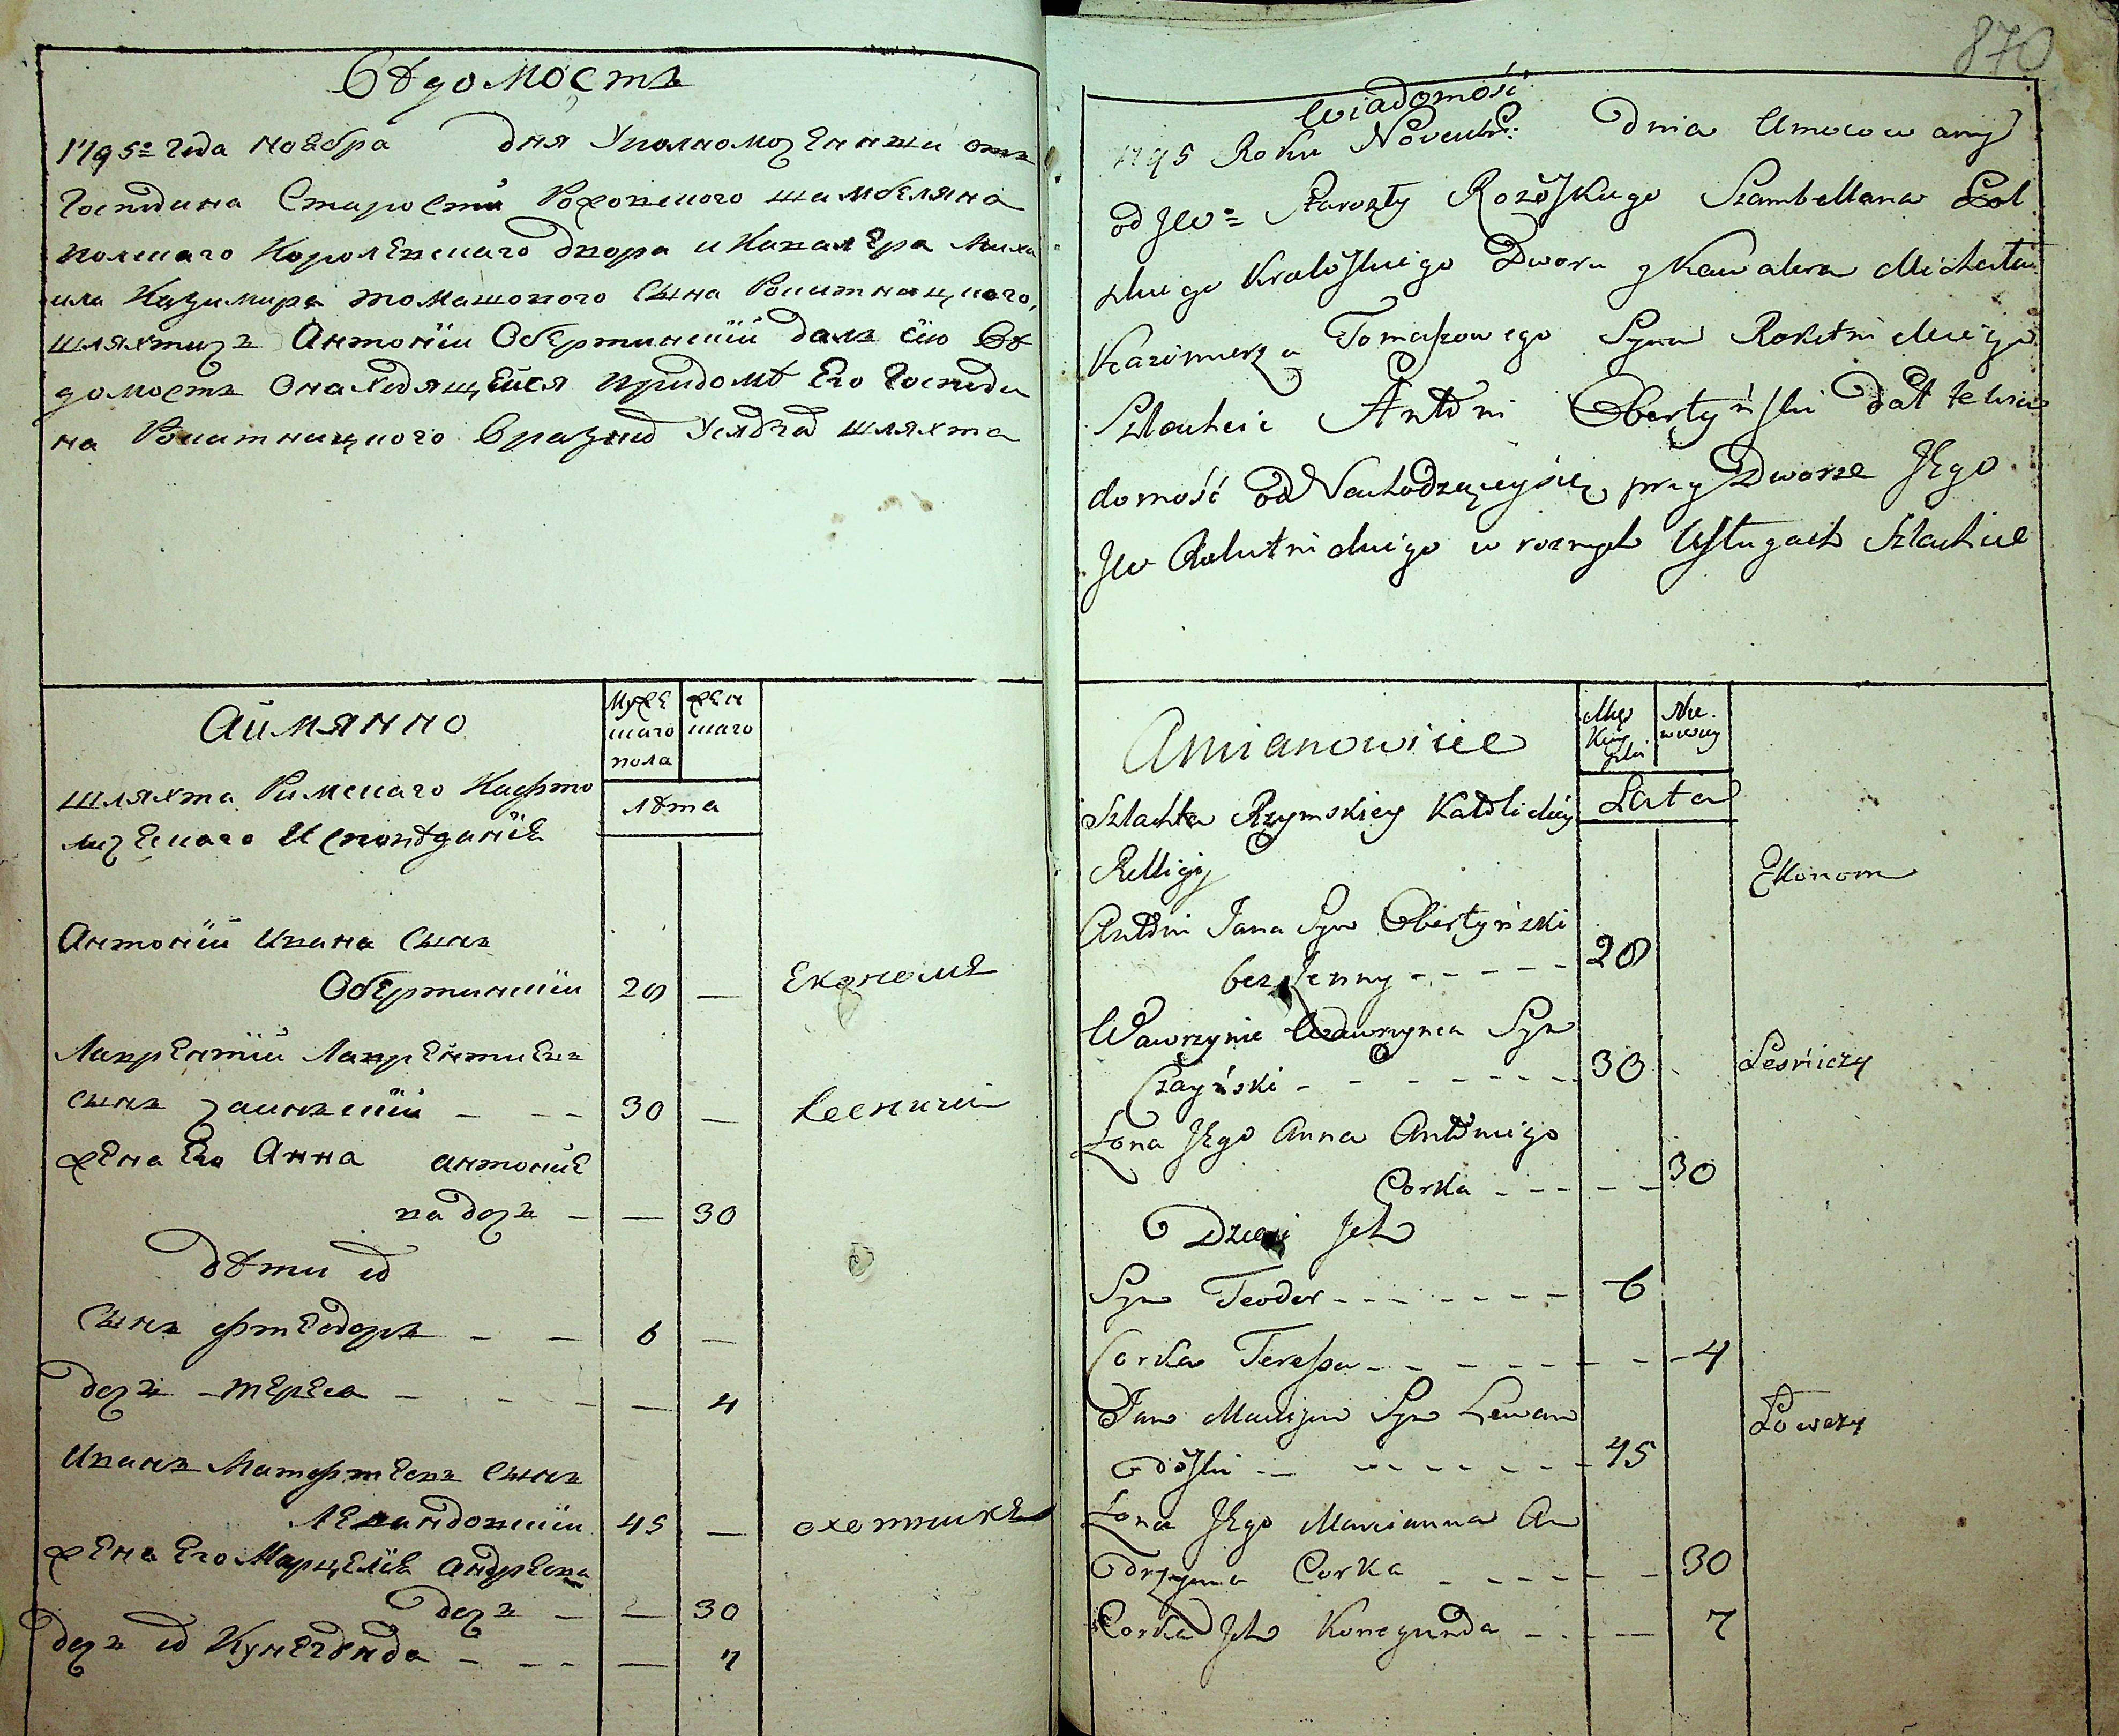 Вѣдомость
1795º года ноебра дня Уполномоченный отъ
Господина Старосты Рожовского шамбеляна
полского Королевского двора и Кавалера Миха
ила Казимира томашового сына Рокитницкого,
шляхтичъ Антоній Обертинскій далъ сію Вѣ
домость онаходящейся придомѣ Его Господи
на Рокитницкого вразныхъ Услугахъ шляхта
Аимянно
Муже
ского
пола
жен
ского
лѣта
шляхта Римского Кафто
лического Исповѣданіе
Антоній Ивана сынъ
Обертинскій 28 — Економъ
Лаврентій Лаврентиевъ
сынъ Чаинскій — — — 30 — Леснични
жена Его Анна антоние
ва дочь — — 30
дѣти ихъ
сынъ фтеодоръ — — 6 —
дочь — тереса — — — — 4
Иванъ Матфтеевъ сынъ
Левандовскій 45 — охотникъ
жена Его Марцелія андреева
дочь — — 30
дочь ихъ Кунегунда — — — — 7
870
Wiadomość
1795 Roku Novembr: dnia Umocowany
od JW= Starosty Rozowskiego Szambellana Pol
skiego Krolowskiego Dworu y Kawalera Michała
Kazimierza Tomaszowego Syna Rokitnickiego
Szlachcic Antoni Obertyński dał te wia
domość od Nachodzącey się przy Dworze Jego
JW Rokitnickiego w roznych Usługach Szlachcie
Amianowicie
Męs
kiey
płci
Nie
wiescy
Lata
Szlachta Rzymskiey Katolickiey
Relligij
Ekonom
Antoni Jana Syn Obertyński
bezżenny - - - - - 28
Wawrzyniec Wawrzynca Syn
Czayński - - - - - - - 30 Leśniczy
Żona Jego Anna Antoniego
Corka - - - - - 30
Dzieci Jch
Syn Teodor - - - - - - - 6
Corka Teressa - - - - - - - - 4
Jan Macieja Syn Lewan
dowski - - - - - - - - 45 Łowczy
Żona Jego Marcianna An
drzeja Corka - - - - - - 30
Corka Jch Konegunda - - - - 7